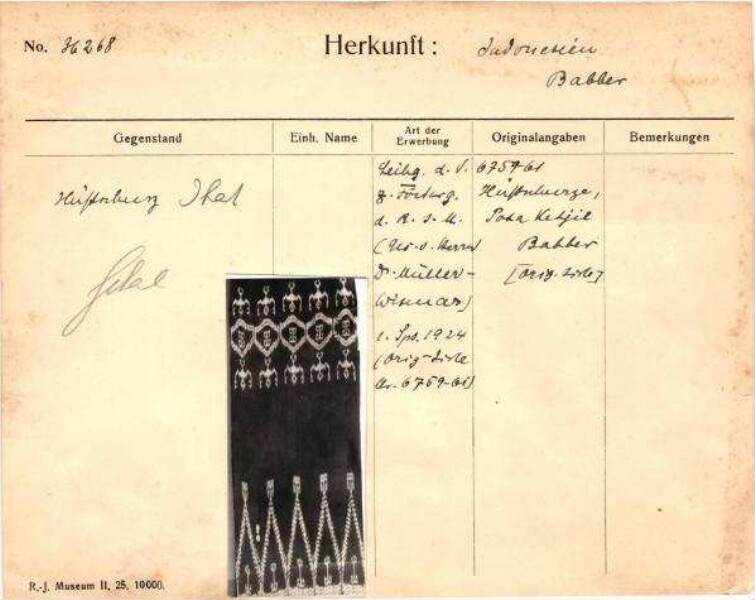 No. 36268
Herkunft:
Indonesien
Babber
Gegenstand
Einh. Name
Art der
Erwerbung
Originalangaben
Bemerkungen
Ikat
Leihg. d. V.
z. Förderg.
d. R. J. M.
Herrn
Dr Müller-
Wismar)
1924
(Orig-Liste
Nr. 6759-61)
6759-61
Ketjil
Babber
[Orig. Liste]
R.-J. Museum II, 25, 10000.